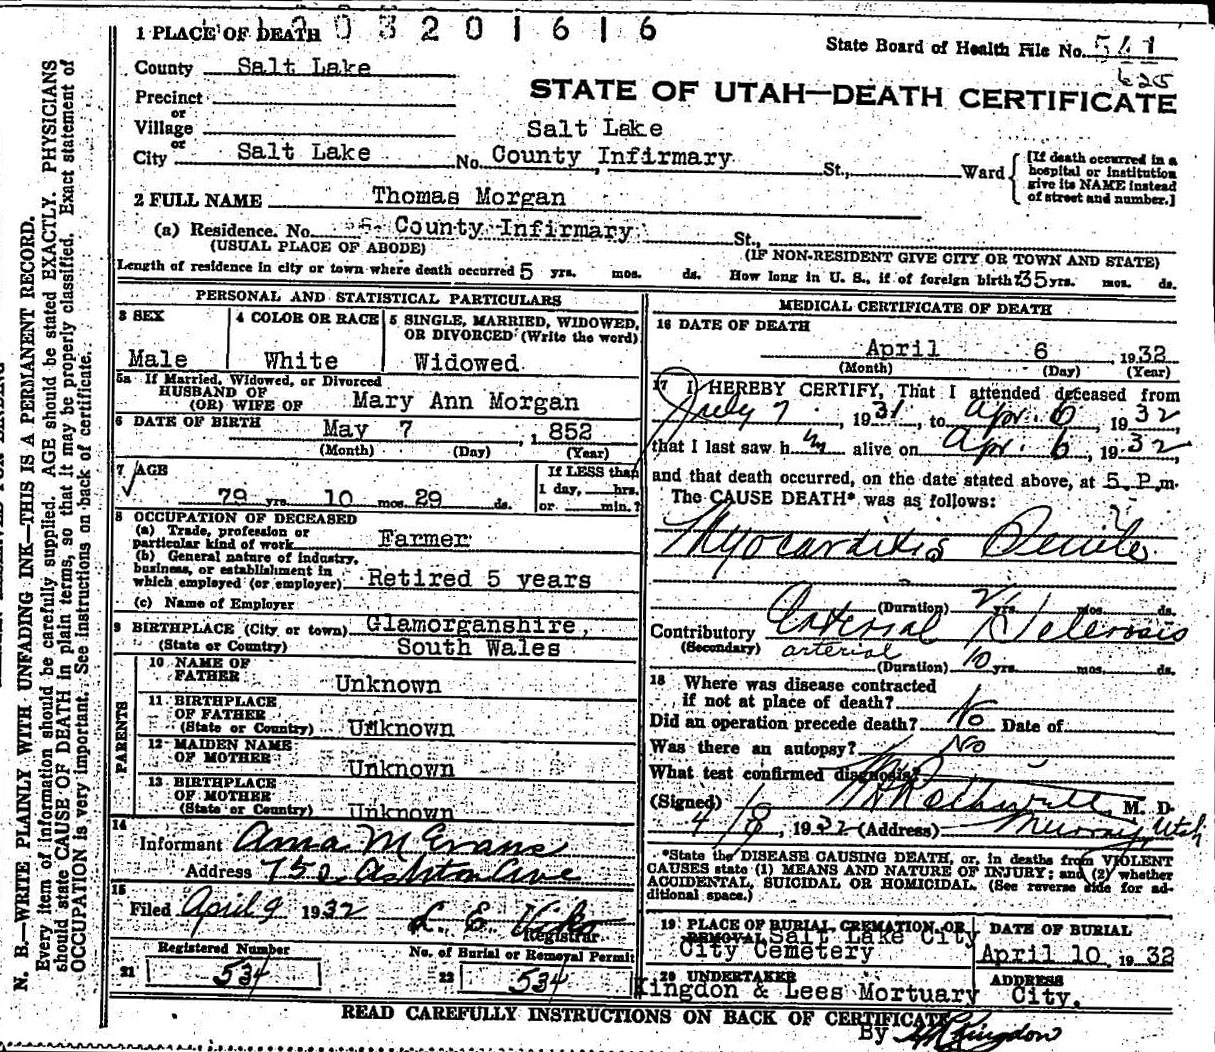 1 PLACE OF DEATH 0 3 2 0 1 6 1 6
State Board of Health File No. 541
625
County Salt Lake
STATE OF UTAH—DEATH CERTIFICATE
Precinct
or
Village
or
Salt Lake
City Salt Lake No. County Infirmary St., Ward
[If death occurred in a
hospital or institution
give its NAME instead
of street and number.]
2 FULL NAME Thomas Morgan
(a) Residence. No. County Infirmary St.,
(USUAL PLACE OF ABODE) (IF NON-RESIDENT GIVE CITY OR TOWN AND STATE)
Length of residence in city or town where death occurred 5 yrs. mos. ds. How long in U. S., if of foreign birth? 35 yrs. mos. ds.
PERSONAL AND STATISTICAL PARTICULARS
3 SEX
Male
4 COLOR OR RACE
White
5 SINGLE, MARRIED, WIDOWED,
OR DIVORCED (Write the word)
Widowed
5a If Married, Widowed, or Divorced
HUSBAND OF
(OR) WIFE OF Mary Ann Morgan
6 DATE OF BIRTH May 7, 1852
(Month) (Day) (Year)
7 AGE
79 yrs. 10 mos. 29 ds.
If LESS than
1 day, hrs.
or min.?
8 OCCUPATION OF DECEASED
(a) Trade, profession or
particular kind of work Farmer
(b) General nature of industry,
business, or establishment in
which employed (or employer) Retired 5 years
(c) Name of Employer
9 BIRTHPLACE (City or town) Glamorganshire,
(State or Country) South Wales
PARENTS
10 NAME OF
FATHER Unknown
11 BIRTHPLACE
OF FATHER
(State or Country) Unknown
12 MAIDEN NAME
OF MOTHER
Unknown
13 BIRTHPLACE
OF MOTHER
(State or Country) Unknown
14
Informant Anna M Evans
Address 752 Ashton Ave
15
Filed April 9 1932 L. E. Viko
Registrar
Registered Number
21 534
No. of Burial or Removal Permit
22 534
MEDICAL CERTIFICATE OF DEATH
16 DATE OF DEATH
April 6, 1932
(Month) (Day) (Year)
17 I HEREBY CERTIFY, That I attended deceased from
July 7, 1931, to Apr. 6, 1932,
that I last saw him alive on Apr. 6, 1932,
and that death occurred, on the date stated above, at 5 P.m.
The CAUSE DEATH* was as follows:
Myocarditis Senile
(Duration) 2 yrs. mos. ds.
Contributory Arterial Sclerosis
(Secondary) arterial
(Duration) 10 yrs. mos. ds.
18 Where was disease contracted
if not at place of death?
Did an operation precede death? No Date of
Was there an autopsy? No
What test confirmed diagnosis?
(Signed) M. D.
4/8, 1932 (Address) Murray, Utah
*State the DISEASE CAUSING DEATH, or, in deaths from VIOLENT
CAUSES state (1) MEANS AND NATURE OF INJURY; and (2) whether
ACCIDENTAL, SUICIDAL OR HOMICIDAL. (See reverse side for ad-
ditional space.)
19 PLACE OF BURIAL, CREMATION, OR
REMOVAL Salt Lake City
City Cemetery
DATE OF BURIAL
April 10, 1932
20 UNDERTAKER
Kingdon & Lees Mortuary
ADDRESS
City.
READ CAREFULLY INSTRUCTIONS ON BACK OF CERTIFICATE
By Kingdon
N. B.—WRITE PLAINLY WITH UNFADING INK—THIS IS A PERMANENT RECORD.
Every item of information should be carefully supplied. AGE should be stated EXACTLY. PHYSICIANS
should state CAUSE OF DEATH in plain terms, so that it may be properly classified. Exact statement of
OCCUPATION is very important. See instructions on back of certificate.